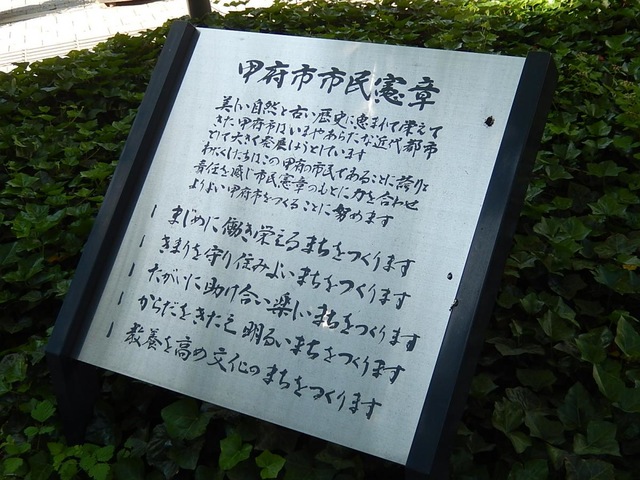 甲府市市民憲章
美しい自然と古い歴史に恵まれて栄えて
きた甲府市はいまやあらたな近代都市
として大きく発展しようとしています
わたくしたちはこの甲府の市民であることに誇りと
責任を感じ市民憲章のもとに力を合わせ
よりよい甲府市をつくることに努めます
1 まじめに働き栄えるまちをつくります
1 きまりを守り住みよいまちをつくります
1 たがいに助け合い楽しいまちをつくります
1 からだをきたえ明るいまちをつくります
1 教養を高め文化のまちをつくります